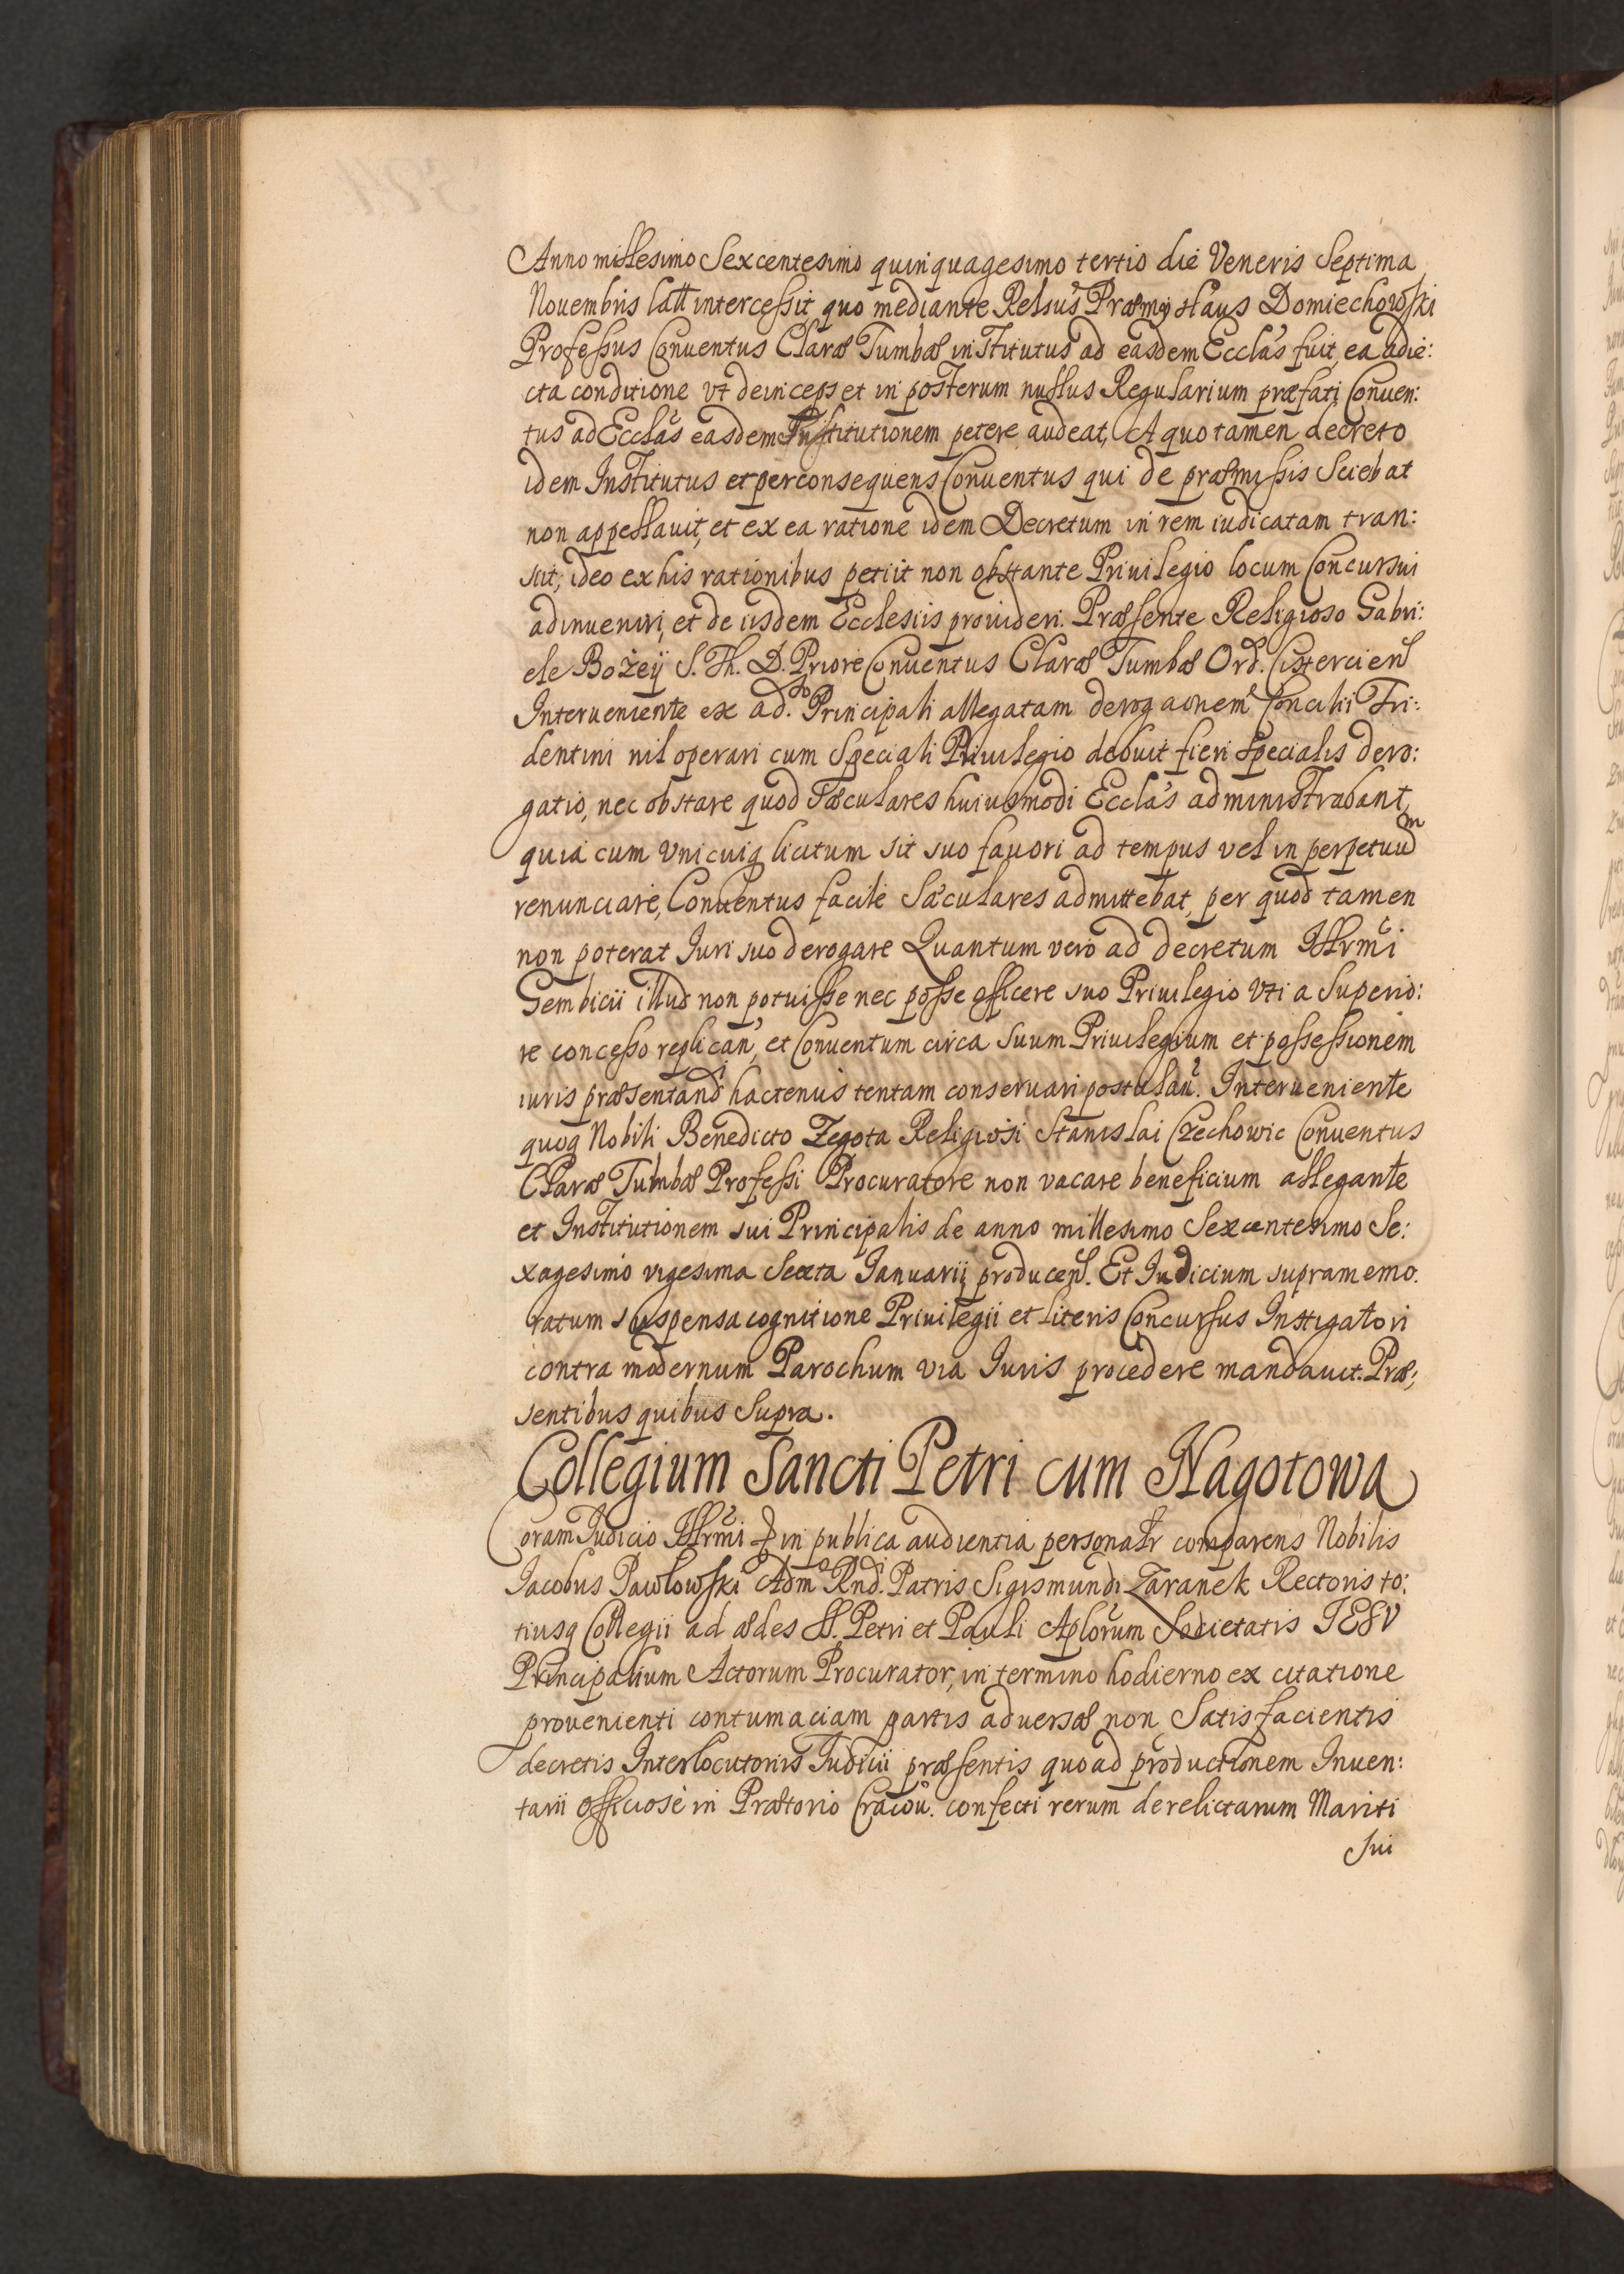 Anno millesimo Sexcentesimo quinquagesimo tertio die Veneris Septima
Nouembris latt intercessit, quo mediante Relsus Præmÿslaus Domiechowski
Professus Conuentus Claræ Tumbæ institutus ad easdem Ecclas fuit, ea adie:
cta conditione vt deinceps et in posterum nullus Regularium præfati Conuen:
tus ad Ecclas easdem Institutionem petere audeat, A quo tamen decreto
idem Institutus et per consequens Conuentus qui de præmissis Sciebat
non appellauit, et ex ea ratione idem Decretum in rem iudicatam tran:
siit, ideo ex his rationibus petiit non obstante Priuilegio locum Concursui
adinueniri, et de iisdem Ecclesiis prouideri. Præsente Religioso Gabri:
ele Bożeÿ S. Th. D. Priore Conuentus Claræ Tumbæ Ord. Cisterciens
Interueniente ex ado. Principali allegatam derogaonem Concilii Tri:
dentini nil operari cum Speciali Priuilegio debuit fieri Specialis dero:
gatio, nec obstare quod Sæculares huiusmodi Ecclas administrabant,
quia cum Vnicuiq licitum sit suo fauori ad tempus vel in perpetuum
renunciare, Conuentus facile Sæculares admittebat, per quod tamen
non poterat Iuri suo derogare Quantum vero ad decretum Illrmi
Gembicii illud non potuisse nec posse officere suo Priuilegio Vti a Superio:
re concesso replican, et Conuentum circa suum Priuilegium et possessionem
iuris præsentandi hactenus tentam conseruari postulau. Interueniente
quoq Nobili Benedicto Zegota Religiosi Stanislai Czechowic Conuentus
Claræ Tumbæ Professi Procuratore non vacare beneficium allegante
et Institutionem sui Principalis de anno millesimo Sexcentesimo Se:
xagesimo vigesima Sexta Ianuarij producen. Et Iudicium supramemo.
ratum suspensa cognitione Priuilegii et literis Concursus Instigatori
contra modernum Parochum via Iuris procedere mandauit. Præ:
sentibus quibus Supra.
Collegium Sancti Petri cum Nagotowa
Coram Iudicio Illrmi in publica audientia personatr comparens Nobilis
Iacobus Pawlowski Admo Rndi. Patris Sigismundi Zaranek Rectoris to:
tiusq Collegii ad ædes SS. Petri et Pauli Aplorum Societatis IESV
Principalium Actorum Procurator, in termino hodierno ex citatione
prouenienti contumaciam partis aduersæ non Satisfacientis
decretis Interlocutoriis Iudicii præsentis quoad productionem Inuen:
tarii officiosè in Prætorio Cracou. confecti rerum derelictarum Mariti
sui